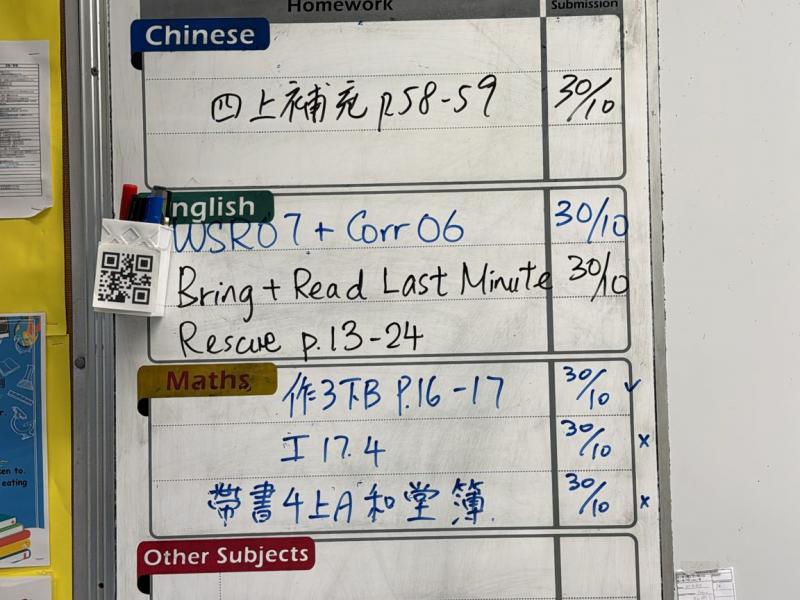 Homework Submission
Chinese
四上補充 p58-59 30/10
English
WSR07 + Corr 06 30/10
Bring + Read Last Minute 30/10
Rescue p.13-24
Maths
作3下B P.16-17 30/10 ✓
工 17.4 30/10 x
帶書4上A和堂簿. 30/10 x
Other Subjects
en to.
eating